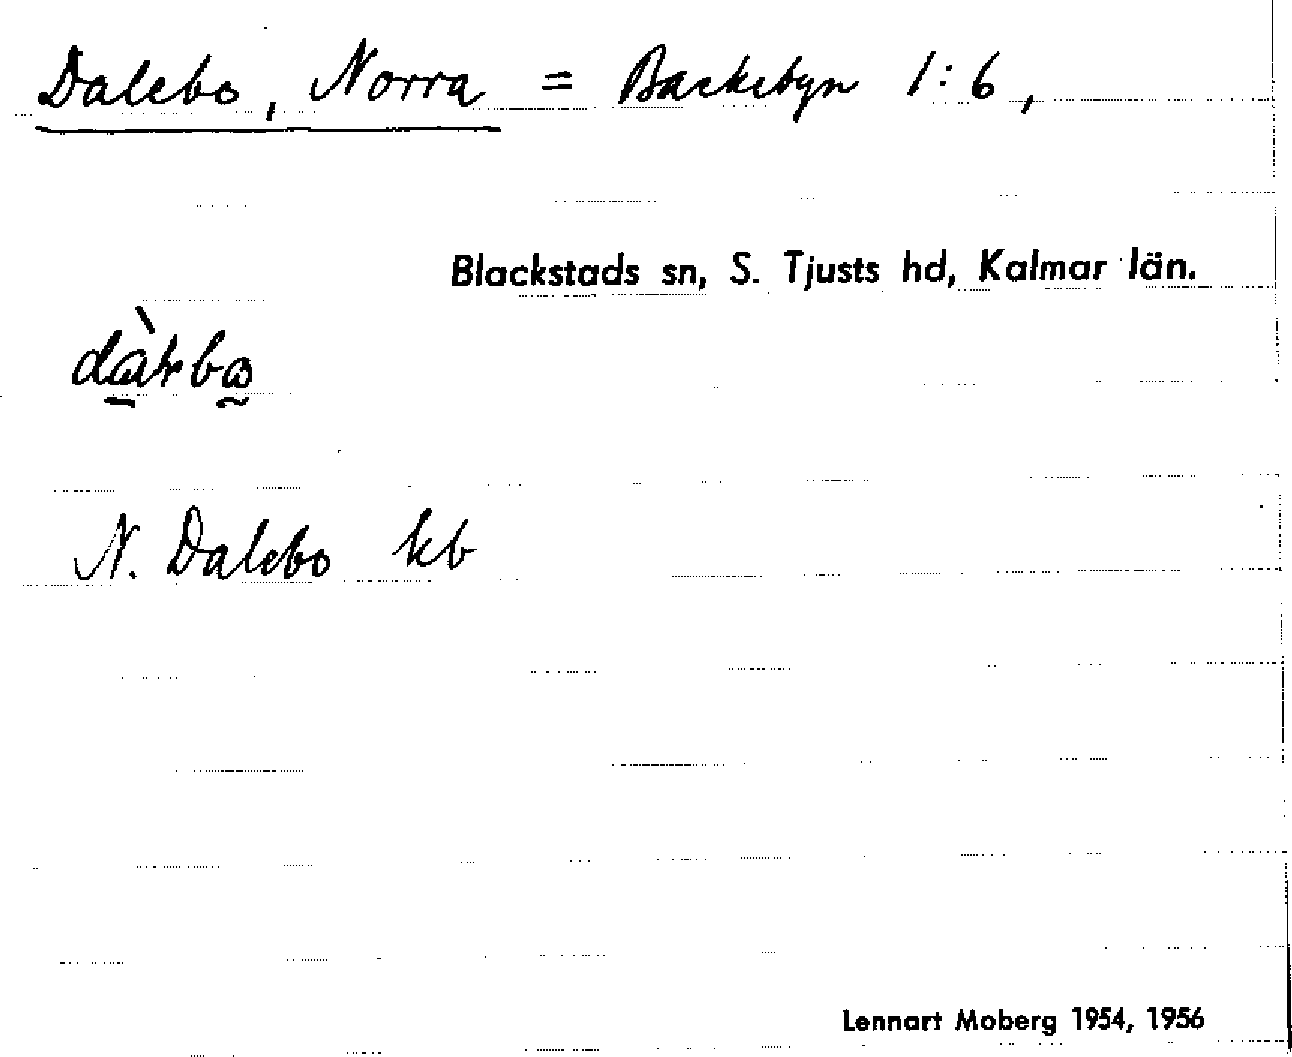 Dalebo, Norra = Backebyn 1:6,
Blackstads sn, S. Tjusts hd, Kalmar län.
N. Dalebo kb
Lennart Moberg 1954, 1956